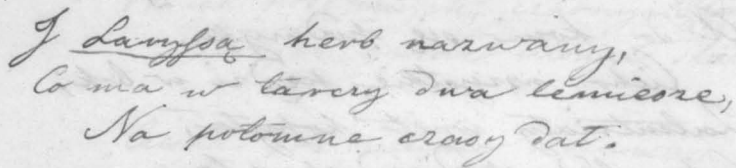 I Ławszą herb nazwany,
Co ma w tarczy dwa lemiesze,
Na potomne czasy dał.